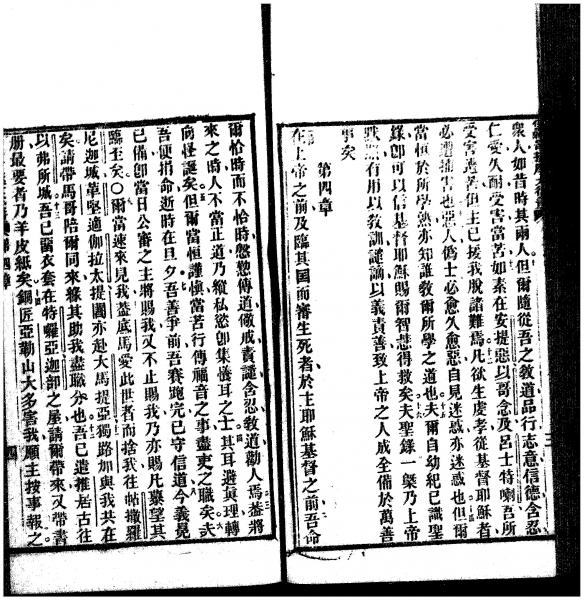 衆人如昔時其兩人但爾隨從吾之敎道品行志意信德含忍
仁愛久耐受害當苦如素在安提惡以哥念及呂士特喇吾所
受害遇著但主已援我脫諸難焉凡欲生虔孝從基督耶穌者
必遭捕害也惡人僞士必愈久愈惡自見迷惑亦迷惑也但爾
當恒於所學熟亦知誰敎爾所學之道也夫爾自幼紀已識聖
錄卽可以信基督耶穌賜爾智慧得救矣夫聖錄一槩乃上帝
有用以敎訓譴謫以義責善致上帝之人成全備於萬善
事矣
第四章
在上帝之前及臨其國而審生死者於主耶穌基督之前吾命
爾恰時而不恰時慇懃傳道儆戒責譴含忍敎道勸人焉葢將
來之時人不當正道乃縱私慾卽集癢耳之士其耳避眞理轉
向怪誕矣但爾當恒謹愼當苦行傳福音之事盡吏之職矣夫
吾便捐命逝時在旦夕吾善爭前吾賽跑完已守信道今義冕
已備卽當日公審之主將賜我又不止賜我乃亦賜凡慕望其
臨至矣○爾當速來見我葢底馬愛此世者而捨我往帖撒羅
尼迦城革堅適伽拉太提圖亦赴大馬提亞獨路加與我共在
矣請帶馬哥陪爾同來緣其助我盡職分也吾已遣推居古往
以弗所城吾已畱衣套在特囉亞迦部之屋請爾帶來又帶書
册最要者乃羊皮紙矣銅匠亞勒山大多害我願主按事報之
四